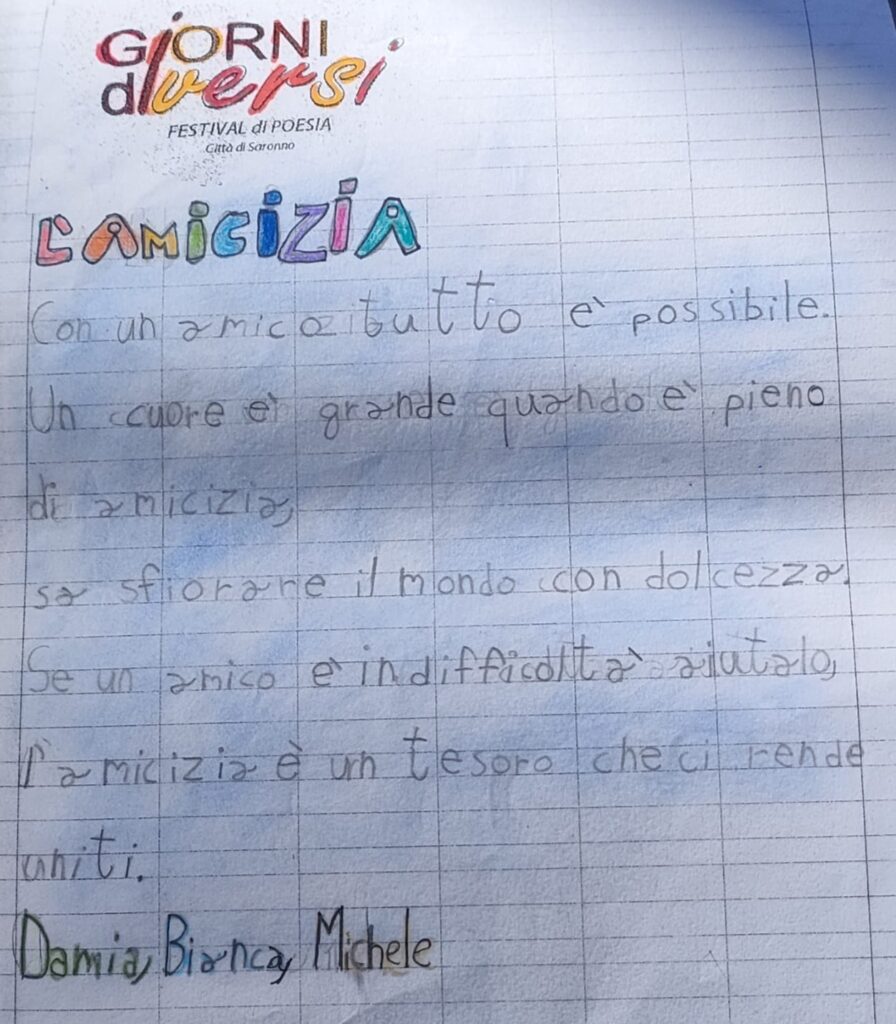 GIORNI
dIversi
FESTIVAL di POESIA
Città di Saronno
L'AMICIZIA
Con un amico tutto è possibile.
Un cuore è grande quando è pieno
di amicizia,
sa sfiorare il mondo con dolcezza.
Se un amico è in difficoltà aiutalo,
l'amicizia è un tesoro che ci rende
uniti.
Damia, Bianca, Michele